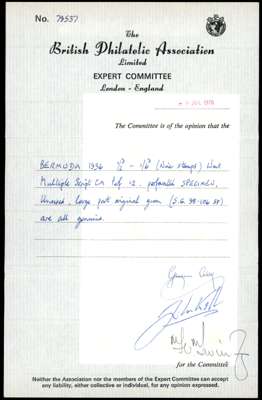 No. 79557
The
British Philatelic Association
Limited
EXPERT COMMITTEE
London - England
JUL 1976
The Committee is of the opinion that the
BERMUDA 1936 ½d - 1/6 (Nine stamps) Wmk
Multiple Script CA Perf 12, perforated SPECIMEN,
Unused, large part original gum (S.G. 98-106 SP)
are all genuine.
for the Committee
Neither the Association nor the members of the Expert Committee can accept
any liability, either collective or individual, for any opinion expressed.